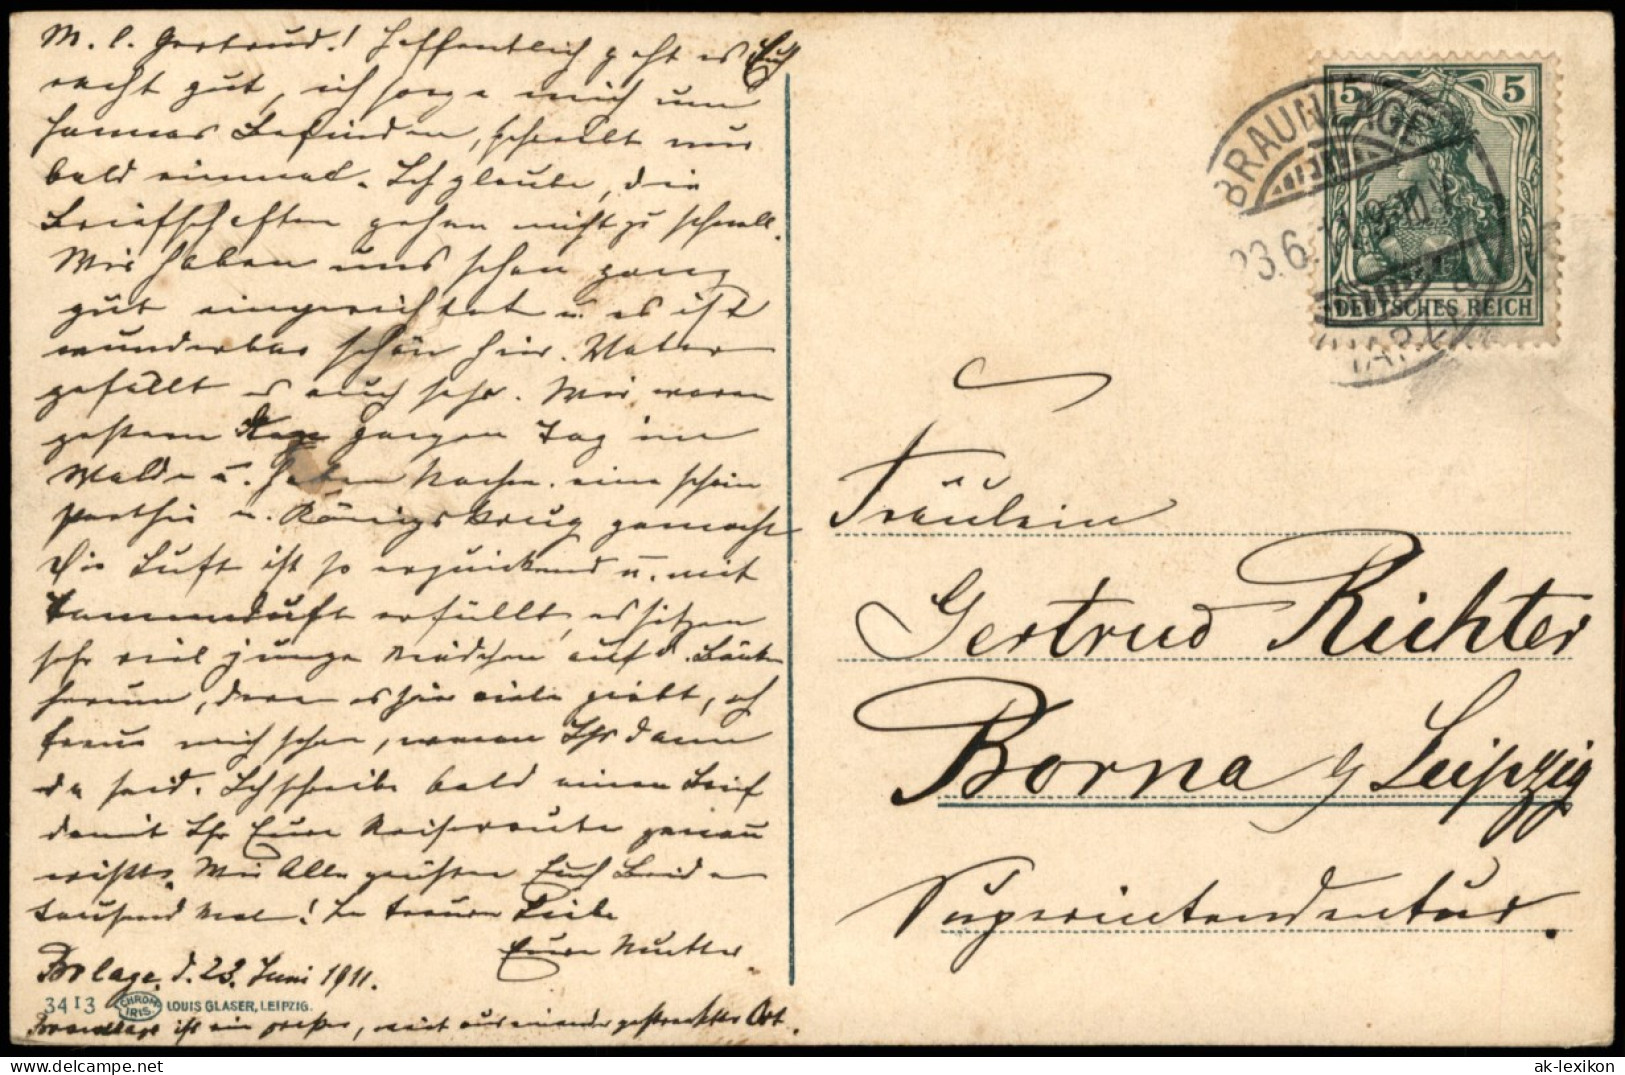 M. l. Gertrud! Hoffentlich geht es Euch
recht gut, ich sorge mich um
Hannas Befinden, schreibt nur
bald einmal. Ich glaube, die
Briefschaften gehen nicht zu schnell.
Wir haben uns schon ganz
gut eingerichtet u. es ist
wunderbar schön hier. Vater
gefällt es auch sehr. Wir waren
gestern den ganzen Tag im
Walde u. haben Nachm. eine schöne
Parthie n. Königskrug gemacht
Die Luft ist so erquickend u. mit
Tannenduft erfüllt, es sitzen
sehr viel junge Mädchen auf d. Bänken
herum, deren es hier viele giebt, ich
freue mich schon, wenn Ihr dann
da seid. Ich schreibe bald einen Brief
damit Ihr Eure Reiseroute genau
wißt. Wir Alle grüßen Euch Beide
tausend Mal! In treuer Liebe
Eure Mutter.
Brlage, d. 23. Juni 1911.
3413 CHROM IRIS. LOUIS GLASER, LEIPZIG.
Braunlage ist ein großer, weit auseinander gestreckter Ort.
5 5
BRAUNLAGE
23.6.11. 9-10 V.
(HARZ)
DEUTSCHES REICH
Fräulein
Gertrud Richter
Borna b/ Leipzig
Superintendentur.
ak-lexikon